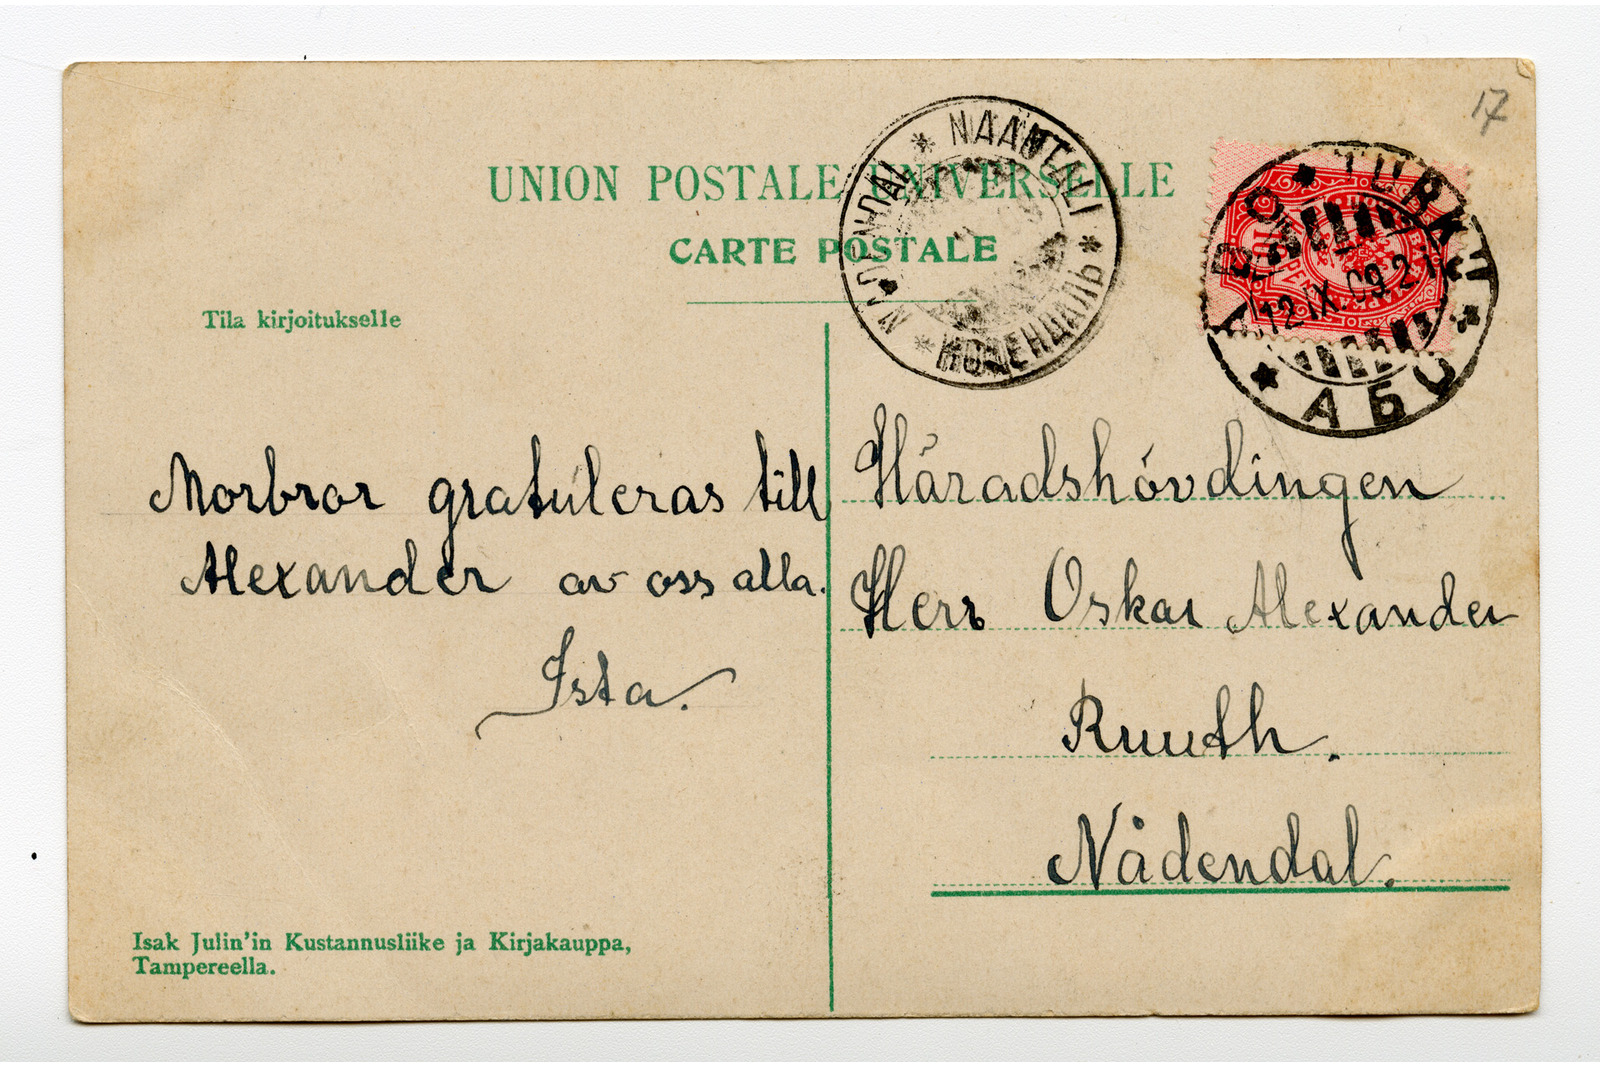 17
UNION POSTALE UNIVERSELLE
CARTE POSTALE
* NAANTALI * НОДЕНДАЛЬ * NÅDENDAL
* TURKU * АБО * ABO
12.IX.09.21
Tila kirjoitukselle
Morbror gratuleras till
Alexander av oss alla.
Ista.
Häradshövdingen
Herr Oskar Alexander
Ruuth.
Nådendal.
Isak Julin'in Kustannusliike ja Kirjakauppa,
Tampereella.